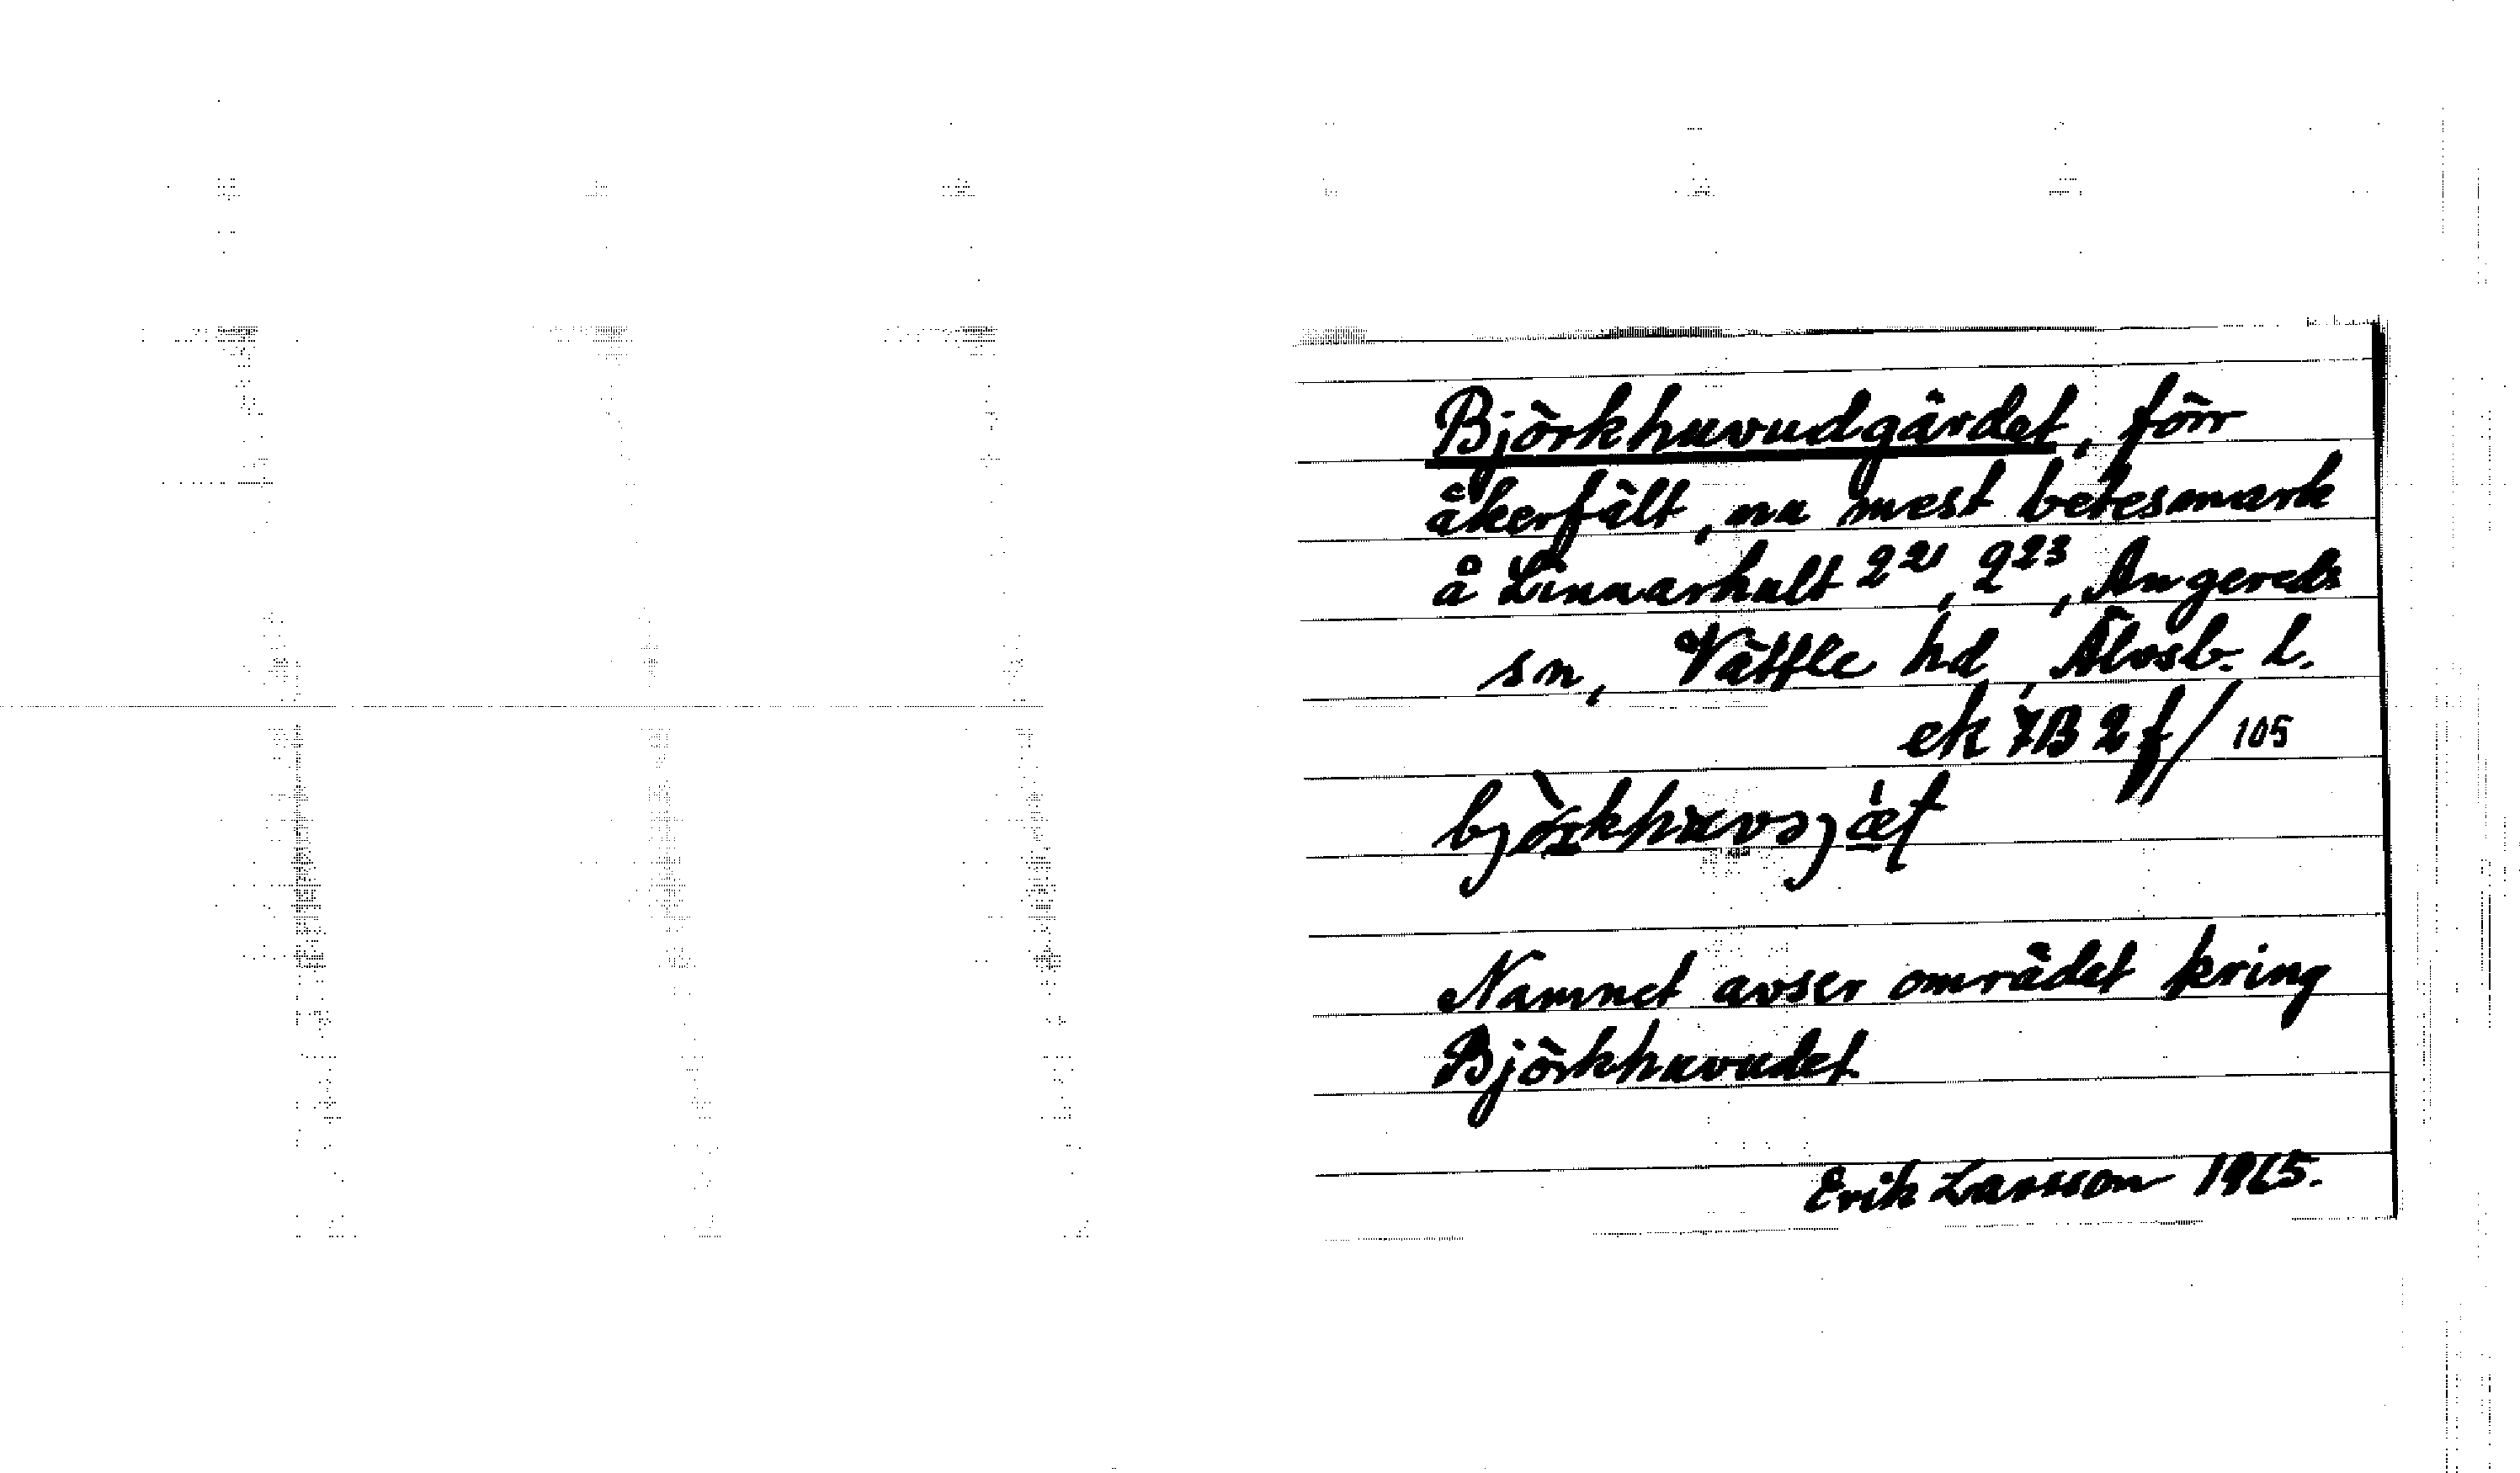 Björkhuvudgärdet, förr
åkerfält, nu mest betesmark
å Linnarhult 2²¹, 2²³, Angereds
sn, Vättle hd, Älvsb. L.
ek 7B 2 f/105
Namnet avser området kring
Björkhuvudet
Erik Larsson 1965.